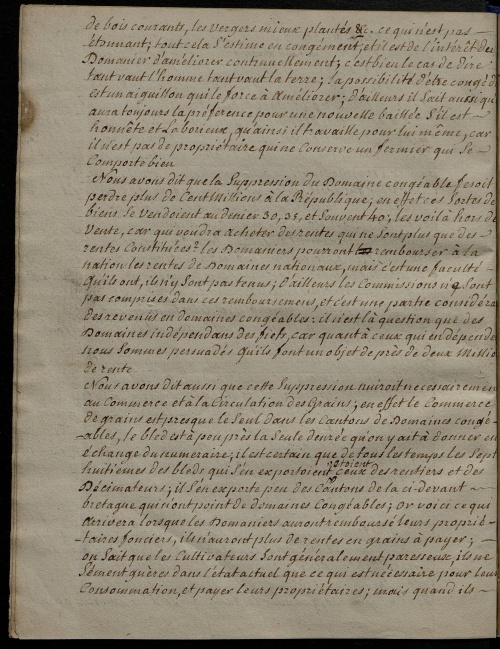 de bois courants, les vergers mieux plantés &c. ce qui n'est pas
étonnant; tout cela s'estime en congément, et il est de l'intérêt du
Domanier d'améliorer continuellement; c'est bien le cas de dire
tant vaut l'homme tant vaut la terre; la possibilité d'être congéd
est un aiguillon qui le force à améliorer; d'ailleurs il sait aussi qu
aura toujours la préférence pour une nouvelle baillée s'il est
honnête et laborieux, qu'ainsi il travaille pour lui même, car
il n'est pas de propriétaire qui ne conserve un fermier qui se
Comporte bien
Nous avons dit que la suppression du Domaine congéable feroit
perdre plus de Cent Millions à la République; en effet ces sortes de
biens se vendoient au denier 30, 35, et souvent 40; les voilà hors de
Vente, car qui voudra acheter des rentes qui ne sont plus que des
rentes Constituées? les Domaniers pourront rembourser à la
nation les rentes de Domaines nationaux, mais c'est une faculté
qu'ils ont, ils n'y sont pas tenus; d'ailleurs les Commissions n'y sont
pas comprises dans ces remboursemens, et c'est une partie considéra
des revenus en domaines congéables: il n'est là question que des
Domaines indépendans des fiefs, car quant à ceux qui en dépende
nous sommes persuadés qu'ils font un objet de près de deux Millio
de rente
Nous avons dit aussi que cette suppression nuiroit nécessairemen
au Commerce et à la Circulation des Grains; en effet le Commerce
de grains est presque le seul dans les Cantons de Domaines congé-
ables, le bled est à peu près la seule denrée qu'on y ait à donner en
échange du numéraire; il est certain que de tous les temps les sept
huitièmes des bleds qui s'en exportoient, étoient ceux des rentiers et des
Décimateurs; il s'en exporte peu des Cantons de la ci-devant
bretagne qui n'ont point de Domaines Congéables; or voici ce qui
arrivera lorsque les Domaniers auront remboursé leurs proprié-
taires fonciers, ils n'auront plus de rentes en grains à payer;
on sait que les Cultivateurs sont généralement paresseux, ils ne
sèment guères dans l'état actuel que ce qui est nécessaire pour leur
Consommation, et payer leurs propriétaires; mais quand ils